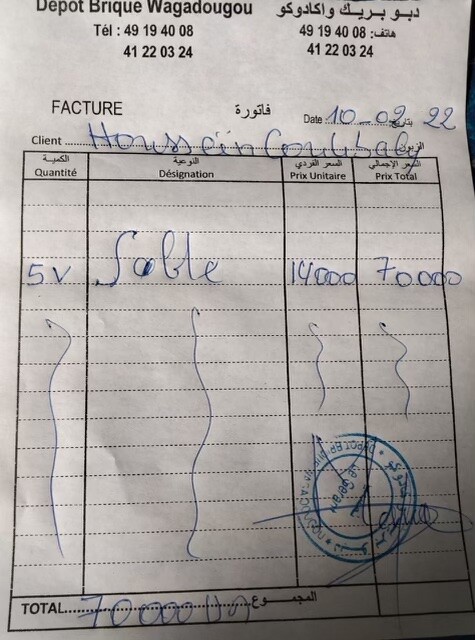 Dépôt Brique Wagadougou دبو بريك واكادوكو
Tél : 49 19 40 08 هاتف: 49 19 40 08
41 22 03 24 41 22 03 24
FACTURE فاتورة Date : 10-02-22 بتاريخ
Client Housseïn Coulibaly الزبون
الكمية النوعية السعر الفردي السعر الإجمالي
Quantité Désignation Prix Unitaire Prix Total
5V Sable 14000 70000
TOTAL 70000 المجموع